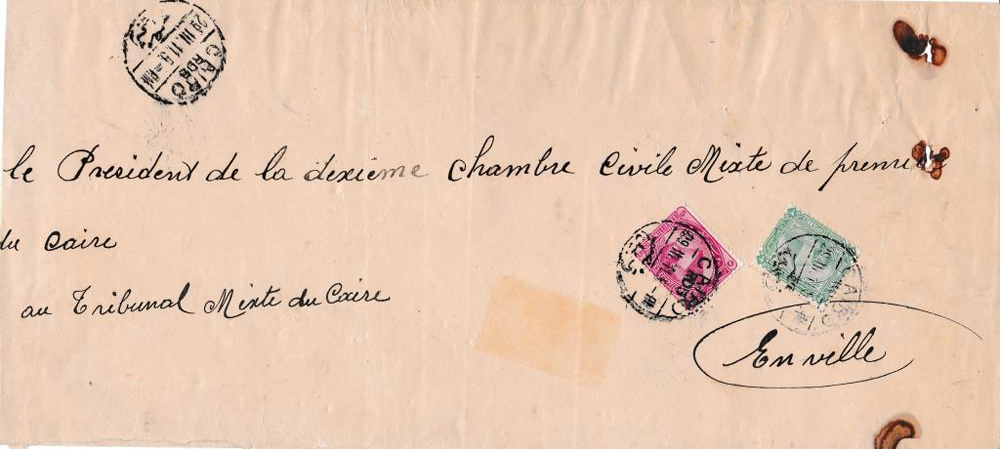 CAIRO
RDB
29.III.11.5
le President de la dexieme chambre Civile Mixte de premier
du Caire
au Tribunal Mixte du Caire
CAIRO
29.III.11
RDB
CAIRO
En ville